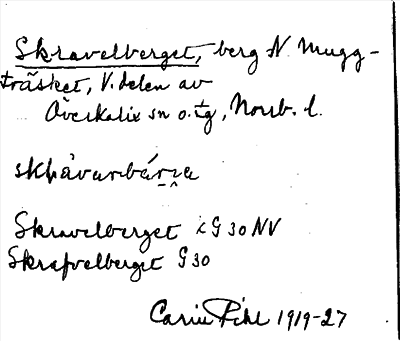 Skravelberget, berg N. Mugg-
träsket, V. delen av
Överkalix sn o. tg, Norrb. l.
Skravelberget G 30 NV
Skrafvelberget G 30
Carin Pihl 1919-27